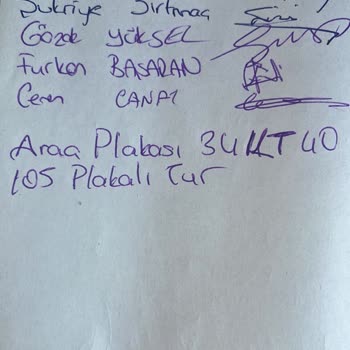 Şükriye Sırtmaç
Gözde YÜKSEL
Furkan BAŞARAN
Ceren CANAZ
Araç Plakası 34 KT 40
105 Plakalı Tur